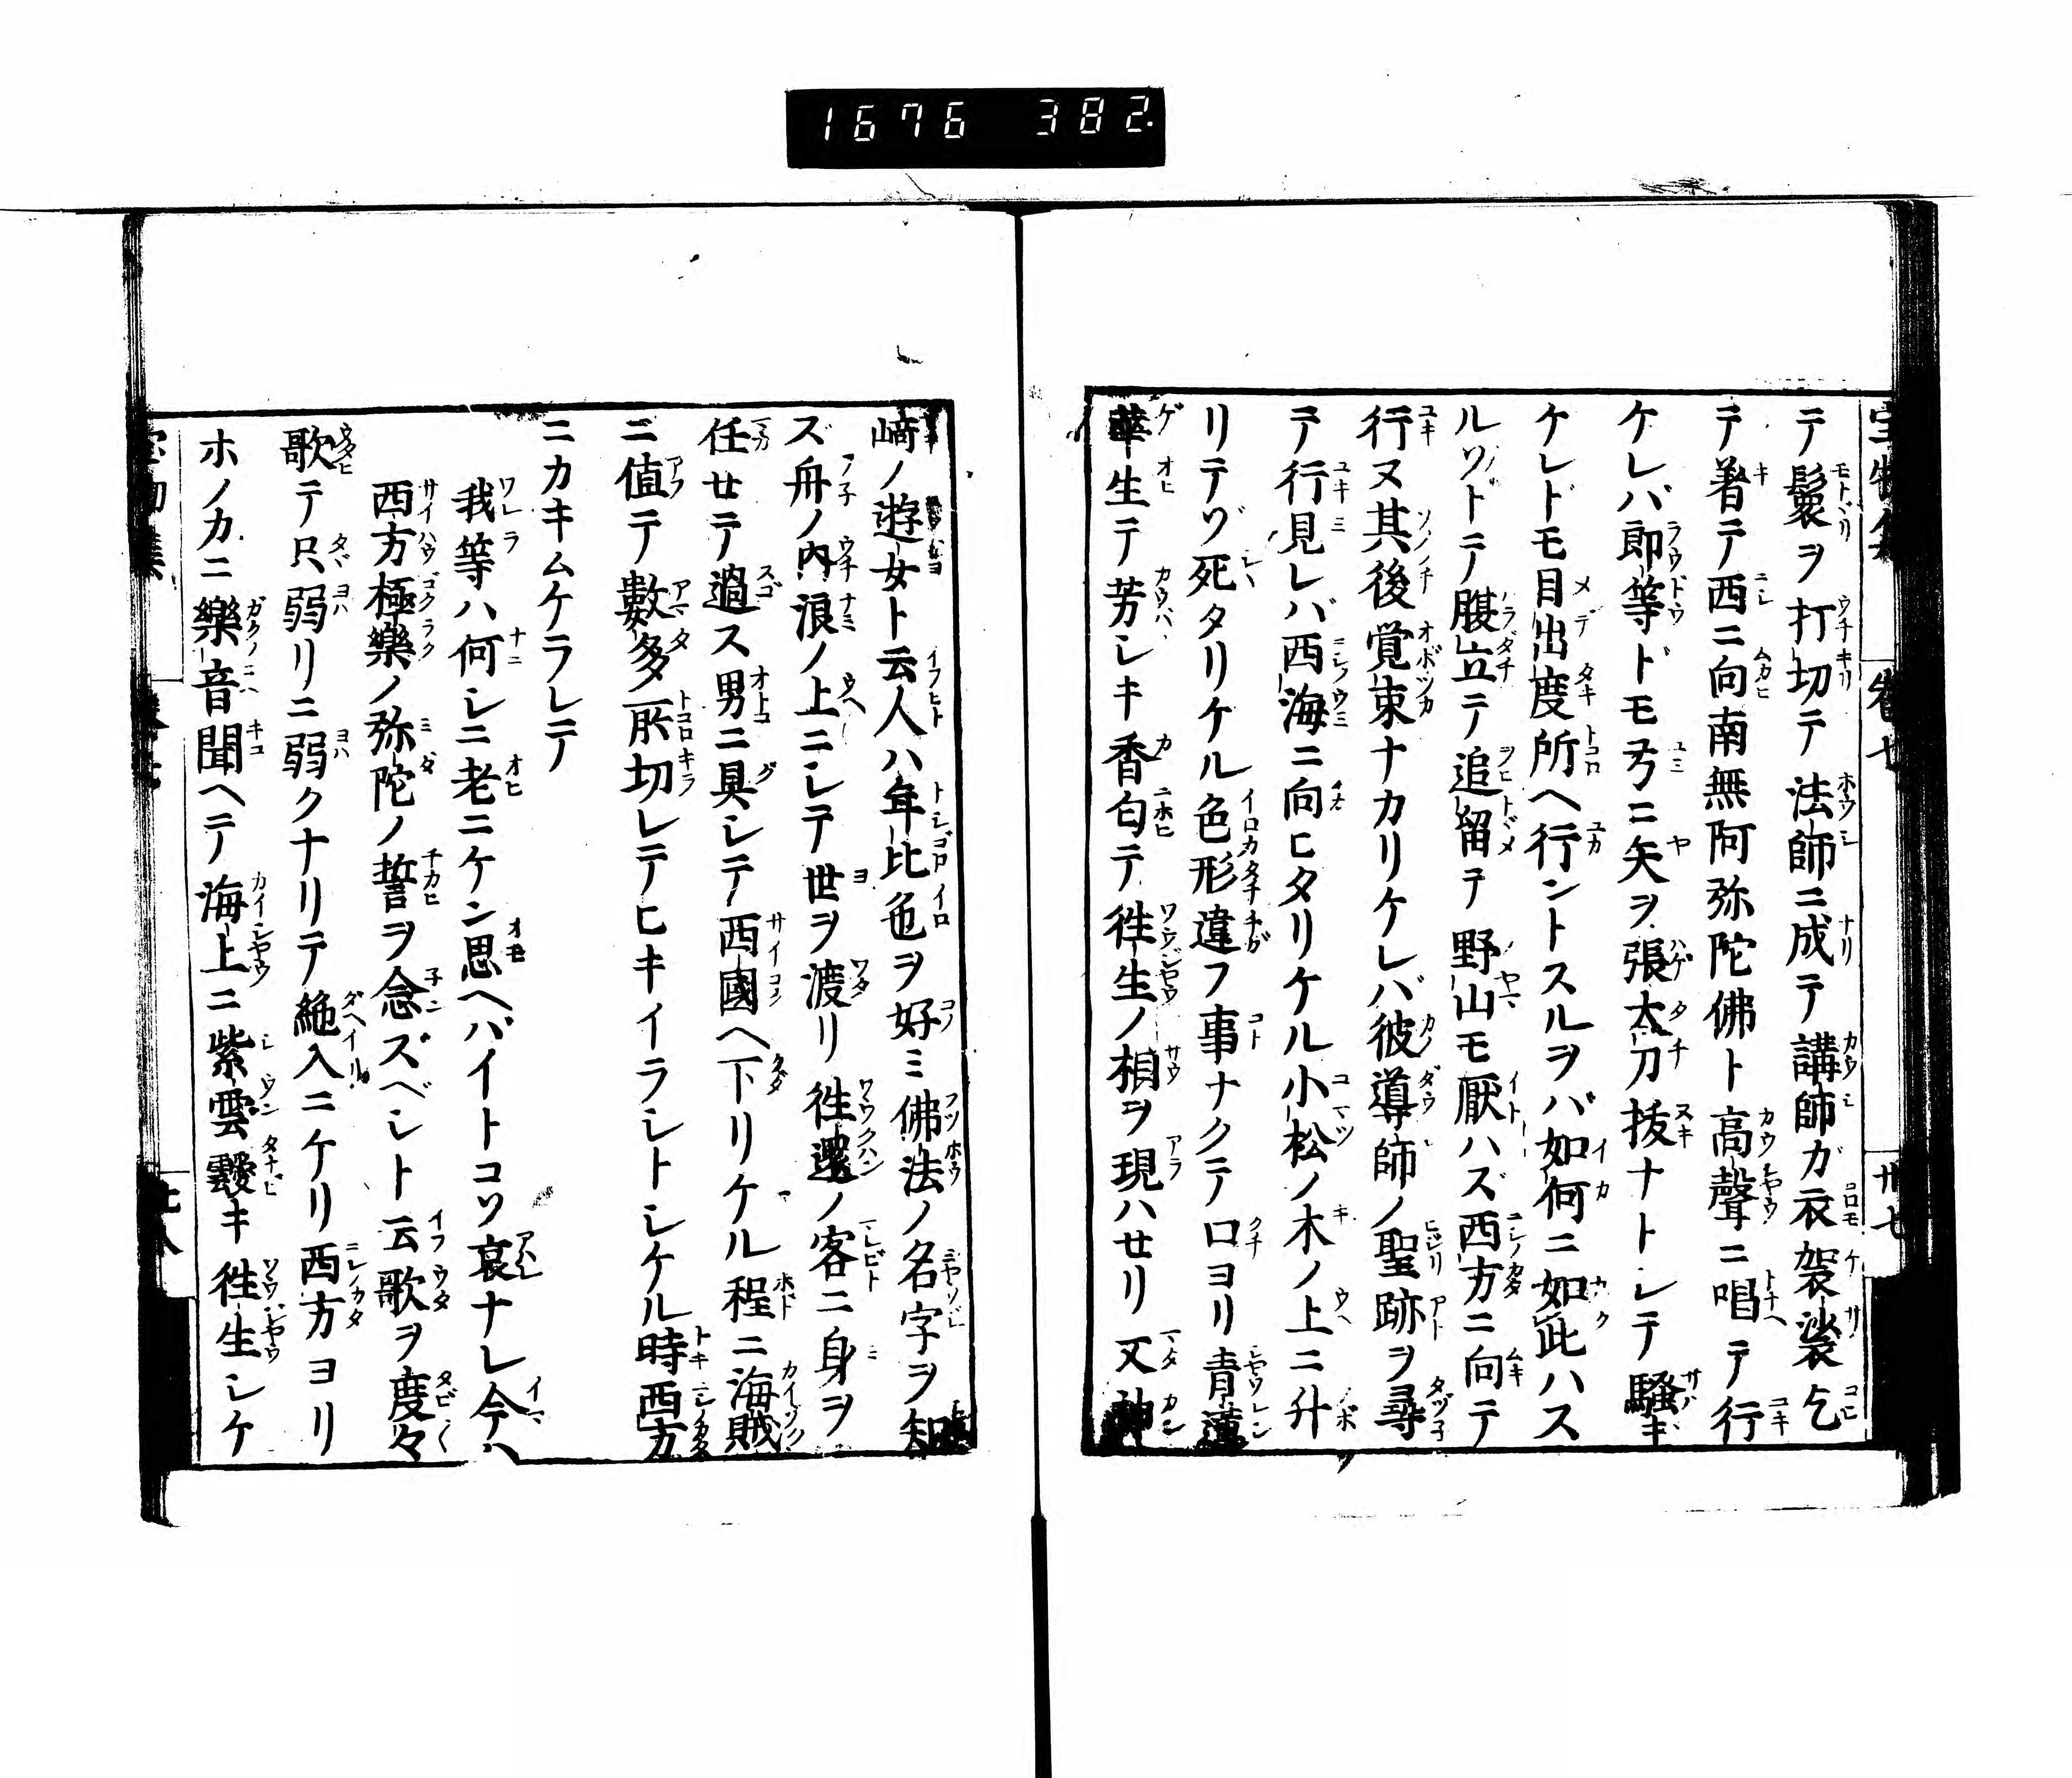 1676 382
テ鬟ヲ打切テ法師ニ成テ講師ガ衣袈裟乞
テ著テ西ニ向南無阿弥陀佛ト高聲ニ唱テ行
ケレバ郎等ドモ弓ニ矢ヲ張太刀抜ナトレテ騒キ
ケレドモ目出度所ヘ行ントスルヲバ如何ニ如此ハス
ルゾトテ腹立テ追留テ野山モ厭ハズ西方ニ向テ
行ヌ其後覚束ナカリケレバ彼導師ノ聖跡ヲ尋
テ行見レバ西海ニ向ヒタリケル小松ノ木ノ上ニ升
リテゾ死タリケル色形違フ事ナクテ口ヨリ青蓮
華生テ芳シキ香匂テ徃生ノ相ヲ現ハせリ又神
崎ノ遊女ト云人ハ年比色ヲ好ミ佛法ノ名字ヲ知
ズ舟ノ内浪ノ上ニシテ世ヲ渡リ徃還ノ客ニ身ヲ
任せテ過ス男ニ具シテ西國ヘ下リケル程ニ海賊
ニ値テ數多所切レテヒキイラレトシケル時西方
ニカキムケラレテ
我等ハ何シニ老ニケン思ヘバイトコソ哀ナレ今ハ
西方極樂ノ弥陀ノ誓ヲ念ズベシト云歌ヲ度々
歌テ只弱リニ弱クナリテ絶入ニケリ西方ヨリ
ホノカニ樂音聞ヘテ海上ニ紫雲靉キ徃生シケ